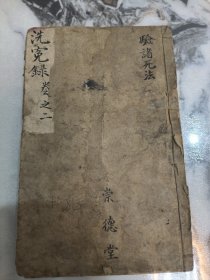 驗諸死法
洗寃録
卷之二
崇德堂